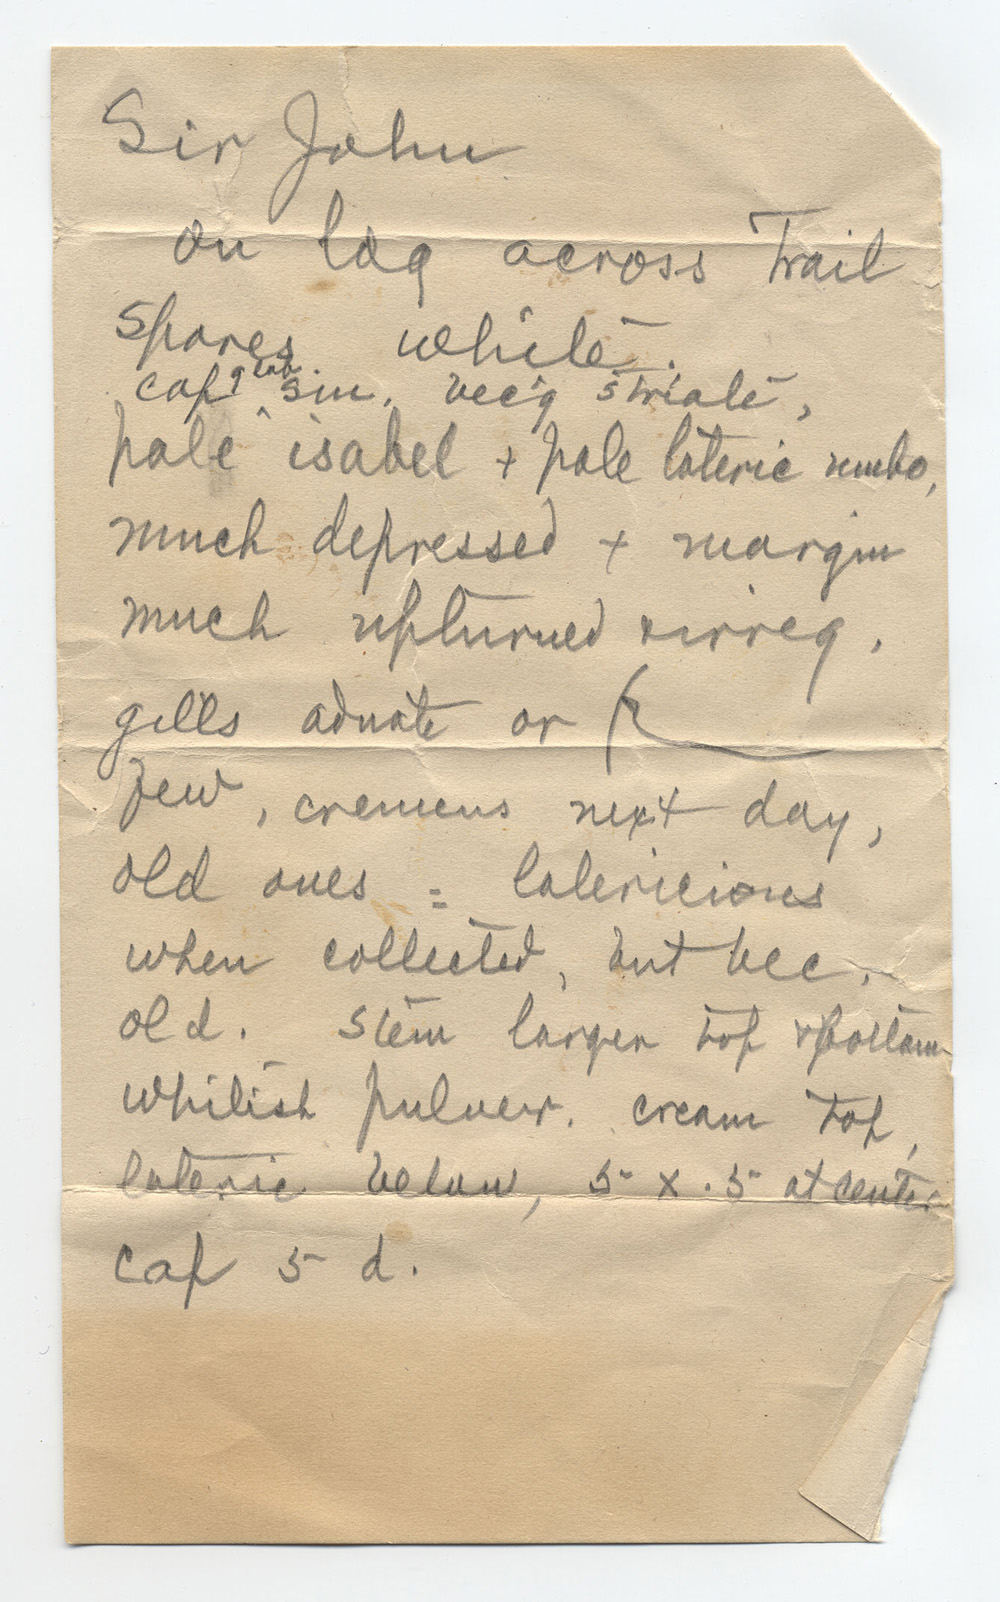 Sir John
on log across trail
spores white.
cap glab. sm. bec'g striate,
pale isabel + pale lateric umbo,
much depressed + margin
much upturned + irreg.
gills adnate or
few, cremeus next day,
old ones = latericious
when collected, but bec.
old. stem larger top + bottom
whitish pulver. cream top,
lateric below, 5 x .5 at center
cap 5 d.